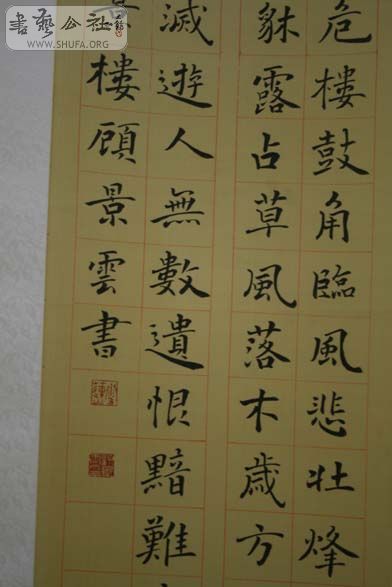 書藝公社
WWW.SHUFA.ORG
危樓鼓角臨風悲壯烽
貅露占草風落木歲方
滅遊人無數遺恨黯難
景樓顧景雲書